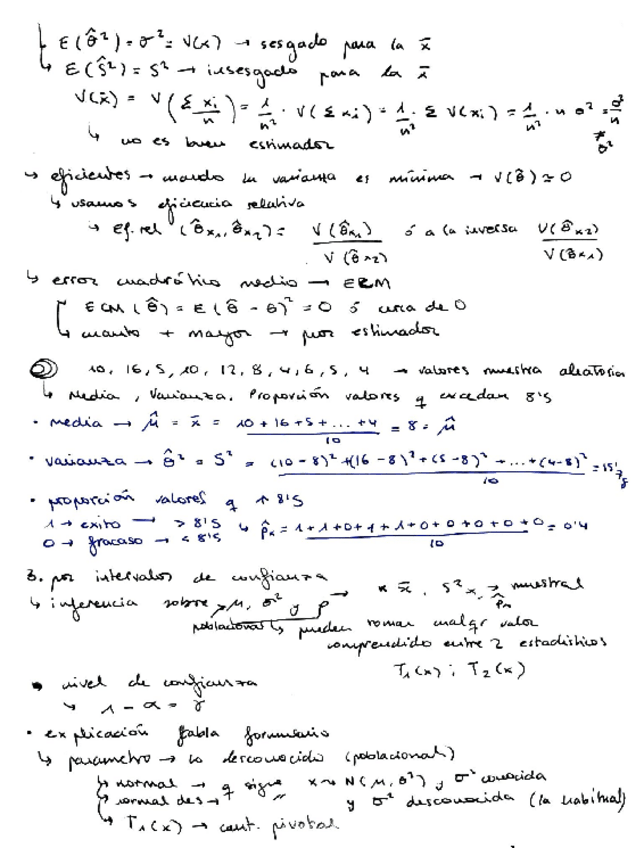 ↳ E(σ̂²) = σ² = V(x) → sesgado para la x̄
↳ E(Ŝ²) = S² → insesgado para la x̄
V(x̄) = V(Σxi/n) = 1/n² · V(Σxi) = 1/n² · Σ V(xi) = 1/n² · n σ² = σ²/n
≠ σ²
↳ no es buen estimador
↳ eficientes → cuando la varianza es mínima → V(θ̂) ≃ 0
↳ usamos eficiencia relativa
↳ ef. rel (θ̂x₁, θ̂x₂) = V(θ̂x₁)/V(θ̂x₂) ó a la inversa V(θ̂x₂)/V(θ̂x₁)
↳ error cuadrático medio → ECM
ECM(θ̂) = E(θ̂ - θ)² = 0 ó cerca de 0
↳ cuanto + mayor → peor estimador
② 10, 16, 5, 10, 12, 8, 4, 6, 5, 4 → valores muestra aleatoria
↳ Media, Varianza, Proporción valores q excedan 8'5
• media → μ̂ = x̄ = 10+16+5+...+4/10 = 8 = μ̂
• varianza → σ̂² = S² = (10-8)²+(16-8)²+(5-8)²+...+(4-8)²/10 =
• proporción valores q ↑ 8'5
1 → exito → > 8'5 ↳ p̂x = 1+1+0+1+1+0+0+0+0+0/10 = 0'4
0 → fracaso → < 8'5
3. por intervalos de confianza
↳ inferencia sobre μ, σ² y p → x̄, S²x, p̂x → muestral
poblacional ↳ pueden tomar cualqr valor
comprendido entre 2 estadísticos
T₁(x) ; T₂(x)
• nivel de confianza
↳ 1 - α = γ
• explicación tabla formulario
↳ parámetro → lo desconocido (poblacional)
↳ normal → q sigue x ~ N(μ, σ²) y σ² conocida
↳ normal des → " y σ² desconocida (la habitual)
↳ T₁(x) → cant. pivotal